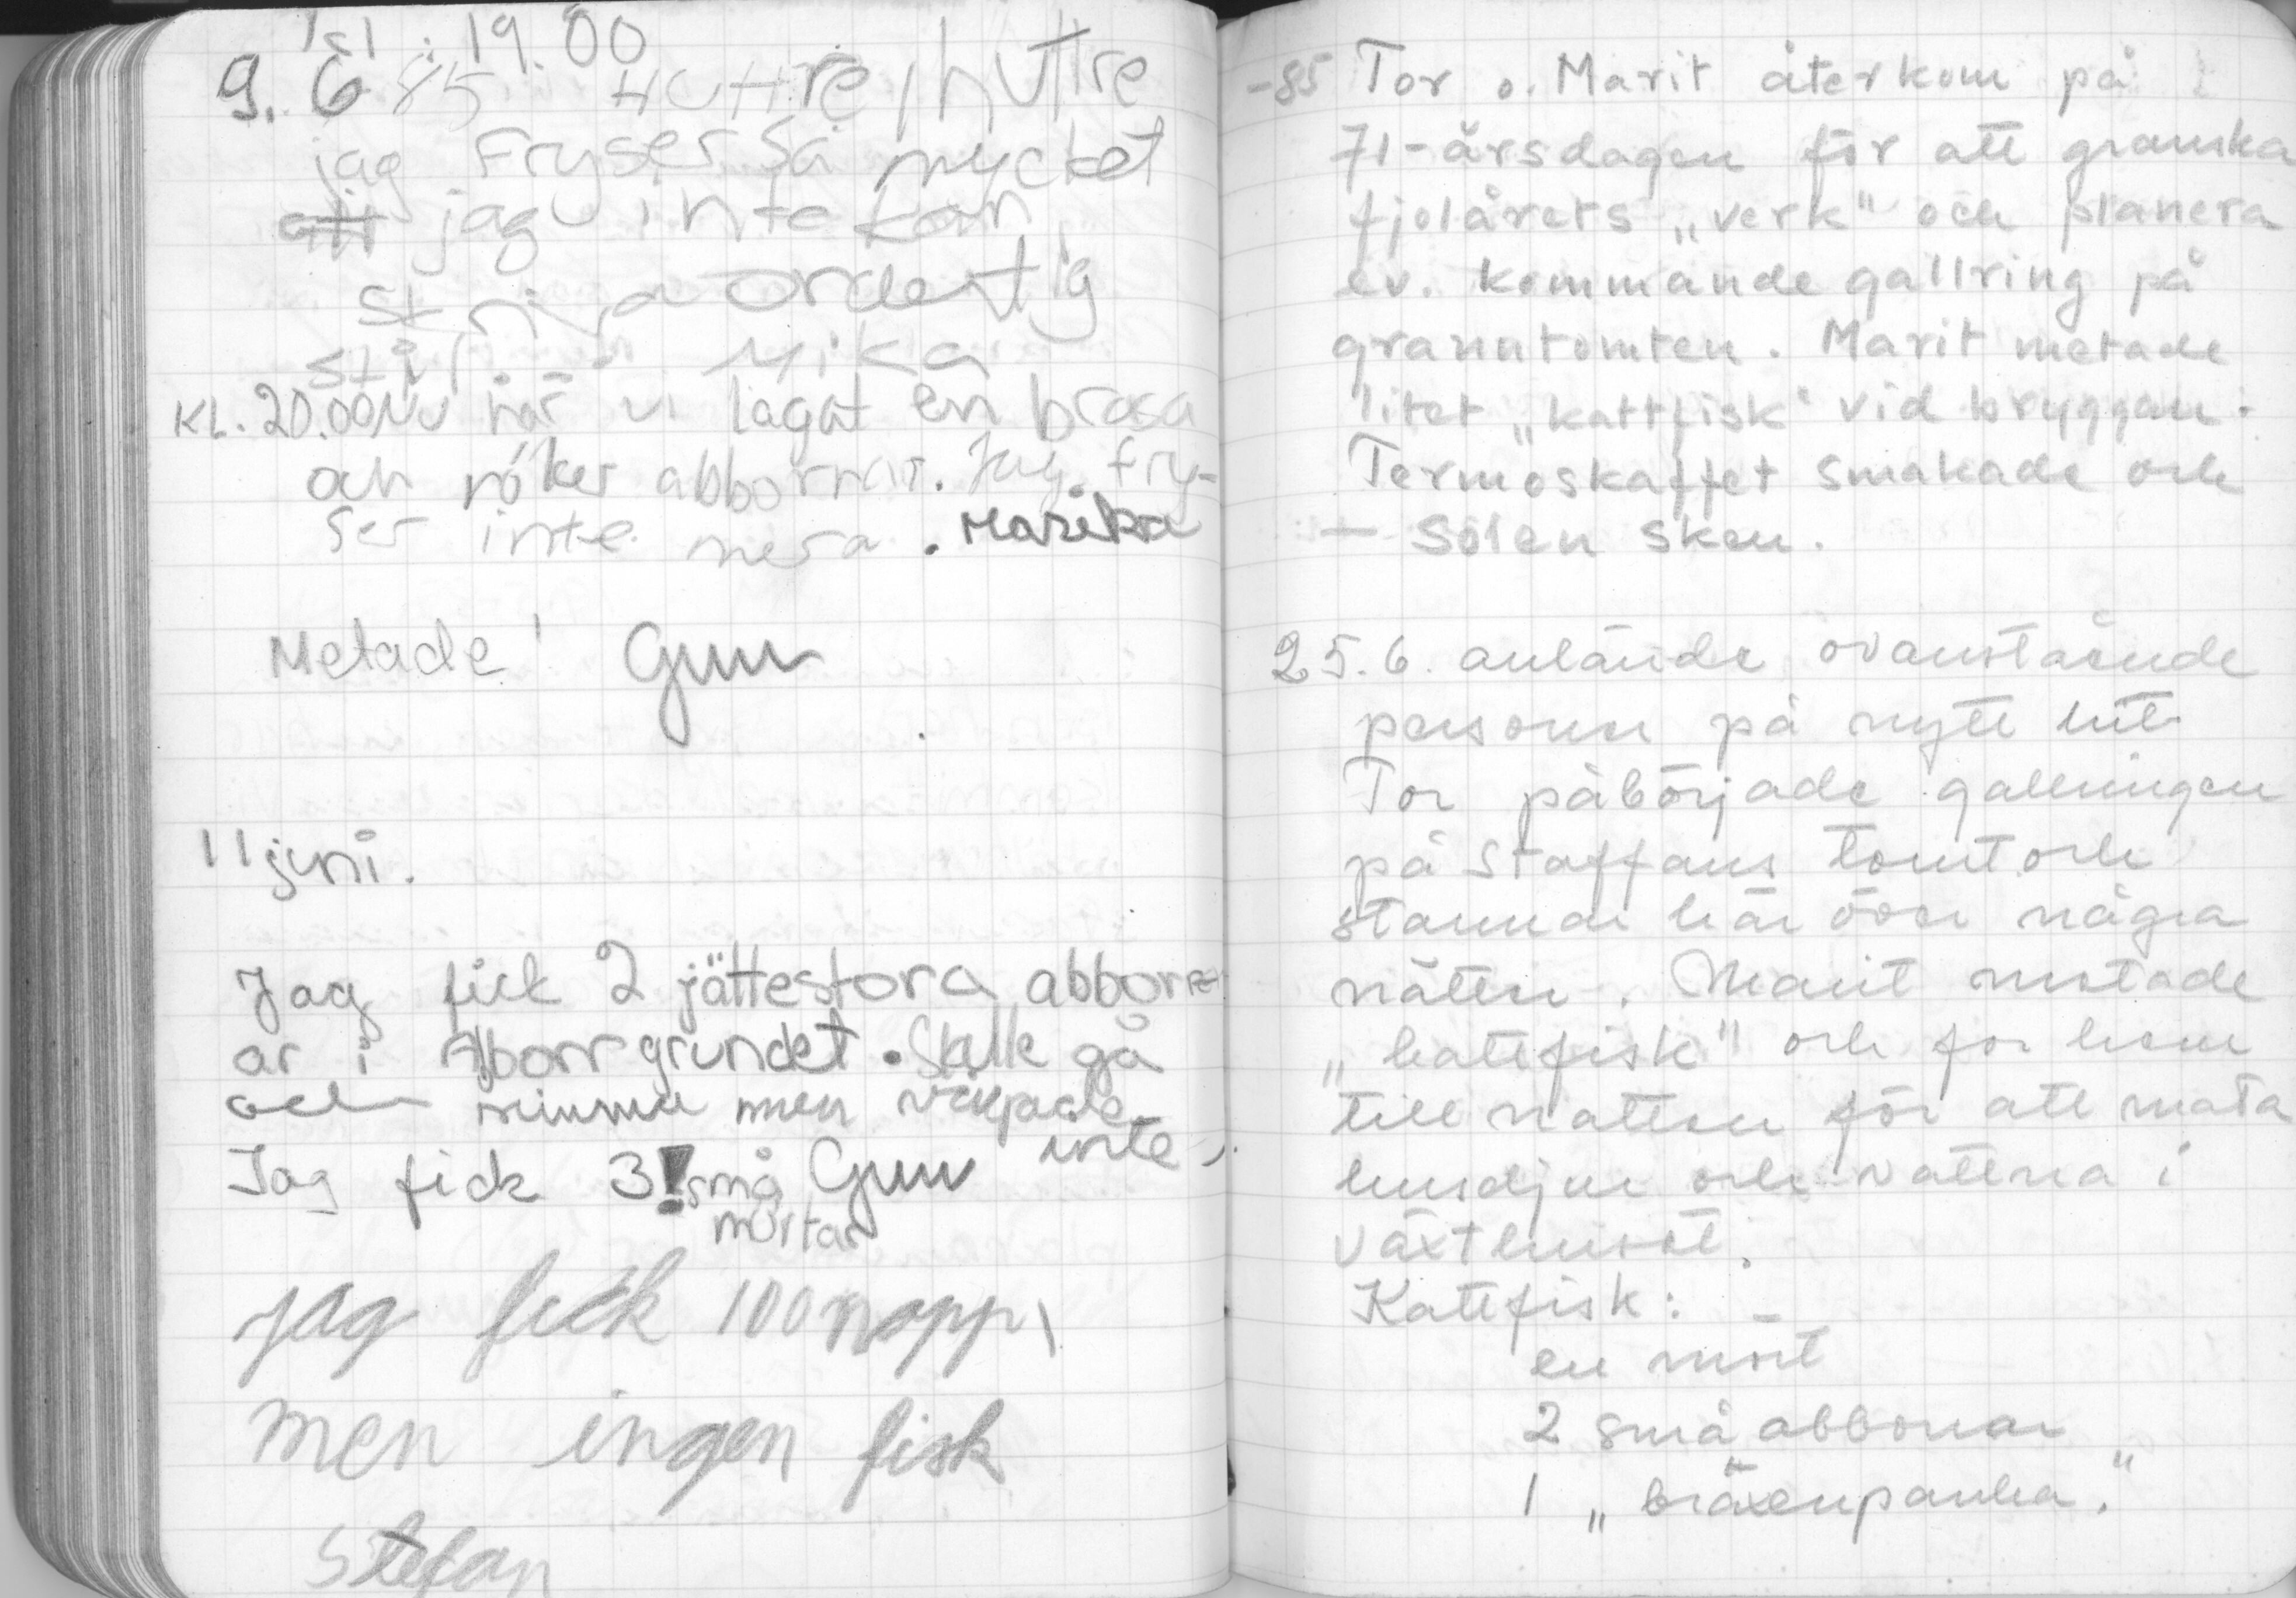 kl: 19.00
9. 6 85 Huttre, huttre
jag fryser så mycket
att jag inte kan
skriva ordentlig
KL. 20.00 Nu när vi lagat en brasa
och röker abborrar. Jag fry-
ser inte mera. Marika
Metade! Gun
11 juni.
Jag fick 2 jättestora abborr
ar i Aborrgrundet. Skulle gå
och simma men våga de
inte.
Jag fick 3! små Gun
mörtar
jag fick 100 napp,
men ingen fisk
Stefan
-85 Tor o. Marit återkom på
71-årsdagen för att granska
fjolårets „verk" och planera
ev. kommande gallring på
granntomten. Marit metade
litet „kattfisk" vid bryggan.
Termoskaffet smakade och
— solen sken.
25.6. anlände ovanstående
personer på nytt hit
Tor påbörjade gallringen
på Staffans tomt och
stannar här över några
nätter. Marit metade
„kattfisk" och for hem
till natten för att mata
husdjur och vattna i
växthuset.
Kattfisk:
en mört
2 små abborrar
1 „bräxenpanka."